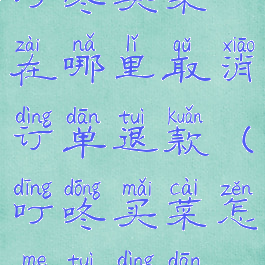 叮咚买菜
zài nǎ lǐ qǔ xiāo
在哪里取消
dìng dān tuì kuǎn
订单退款（
dīng dōng mǎi cài zěn
叮咚买菜怎
me tuì dìng dān